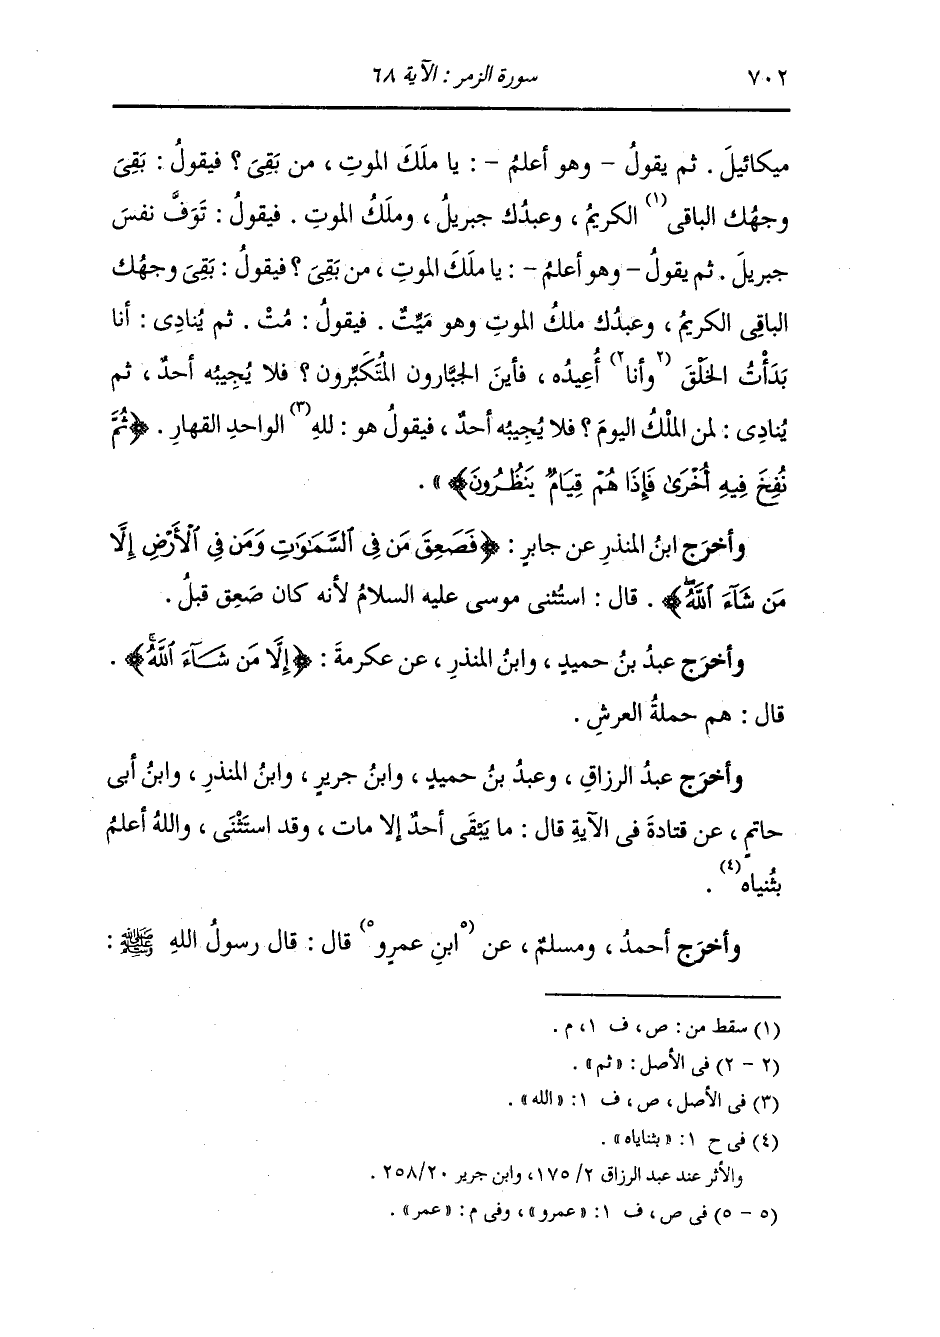 ٧٠٢ سورة الزمر : الآية ٦٨
ميكائيلَ . ثم يقولُ - وهو أعلمُ - : يا ملَكَ الموتِ ، من بَقِىَ ؟ فيقولُ : بَقِىَ
وجهُك الباقى(١) الكريمُ ، وعبدُك جبريلُ ، وملَكُ الموتِ . فيقولُ : تَوَفَّ نفسَ
جبريلَ . ثم يقولُ - وهو أعلمُ - : يا ملَكَ الموتِ ، من بَقِىَ ؟ فيقولُ : بَقِىَ وجهُك
الباقِى الكريمُ ، وعبدُك ملكُ الموتِ وهو مَيِّتٌ . فيقولُ : مُتْ . ثم يُنادِى : أنا
بَدَأْتُ الخَلْقَ (٢وأنا٢) أُعِيدُه ، فأينَ الجبَّارون المُتَكَبِّرون ؟ فلا يُجِيبُه أحدٌ ، ثم
يُنادِى : لمن الملْكُ اليومَ ؟ فلا يُجِيبُه أحدٌ ، فيقولُ هو : للهِ(٣) الواحدِ القهارِ . ﴿ثُمَّ
نُفِخَ فِيهِ أُخْرَىٰ فَإِذَا هُمْ قِيَامٌ يَنظُرُونَ﴾ » .
وأخرَج ابنُ المنذرِ عن جابرٍ : ﴿فَصَعِقَ مَن فِى ٱلسَّمَٰوَٰتِ وَمَن فِى ٱلْأَرْضِ إِلَّا
مَن شَآءَ ٱللَّهُۖ﴾ . قال : استُثنى موسى عليه السلامُ لأنه كان صَعِق قبلُ .
وأخرَج عبدُ بنُ حميدٍ ، وابنُ المنذرِ ، عن عكرمةَ : ﴿إِلَّا مَن شَآءَ ٱللَّهُۖ﴾ .
قال : هم حملةُ العرشِ .
وأخرَج عبدُ الرزاقِ ، وعبدُ بنُ حميدٍ ، وابنُ جريرٍ ، وابنُ المنذرِ ، وابنُ أبى
حاتمٍ ، عن قتادةَ فى الآيةِ قال : ما يَبْقَى أحدٌ إلا مات ، وقد استَثْنَى ، واللهُ أعلمُ
بثُنياه(٤) .
وأخرَج أحمدُ ، ومسلمٌ ، عن (٥ابنِ عمرٍو٥) قال : قال رسولُ اللهِ ﷺ :
(١) سقط من : ص ، ف ١ ، م .
(٢ - ٢) فى الأصل : « ثم » .
(٣) فى الأصل ، ص ، ف ١ : « الله » .
(٤) فى ح ١ : « بثناياه » .
والأثر عند عبد الرزاق ٢/ ١٧٥ ، وابن جرير ٢٠/ ٢٥٨ .
(٥ - ٥) فى ص ، ف ١ : « عمرو » ، وفى م : « عمر » .